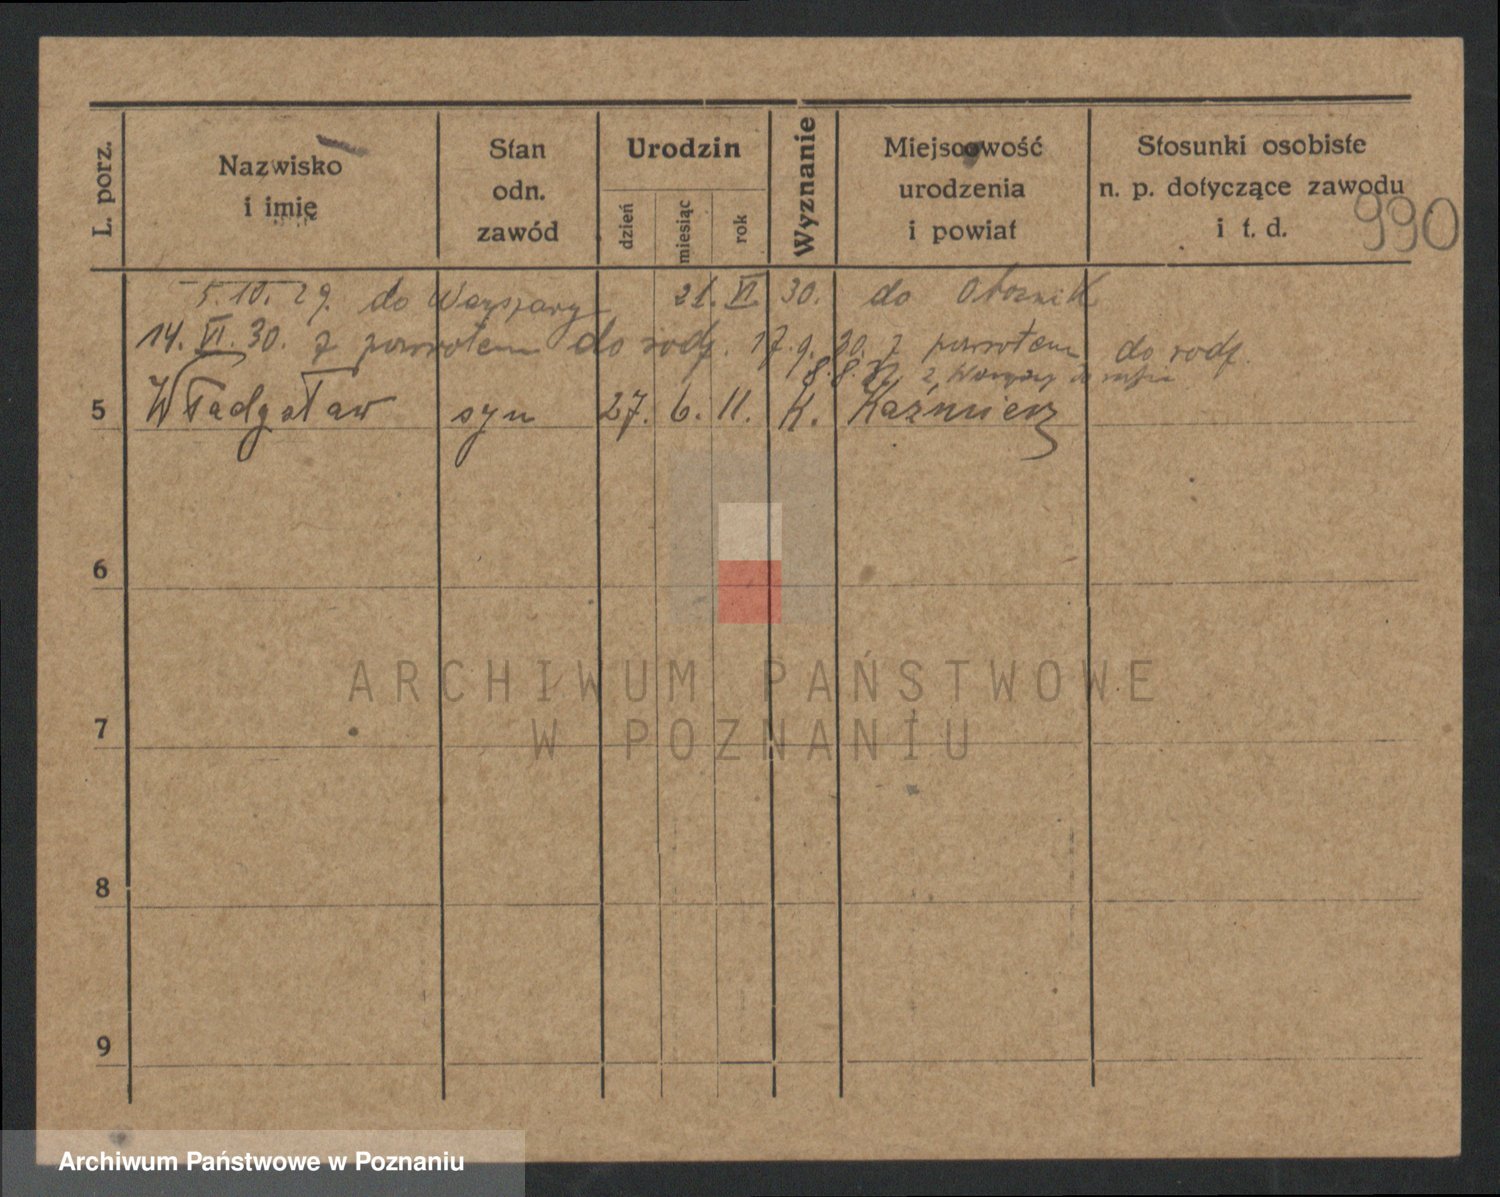 L. porz.
Nazwisko
i imię
Stan
odn.
zawód
Urodzin
dzień
miesiąc
rok
Wyznanie
Miejscowość
urodzenia
i powiat
Stosunki osobiste
n. p. dotyczące zawodu
i t. d.
990
5.10.29. do Warszawy 21. VI. 30. do Obornik
14. VI. 30. z powrotem do rodz. 17.9.30. z powrotem do rodz.
8.8. z
5 Władysław syn 27. 6. 11. K. Kaźmierz
6
7
8
9
ARCHIWUM PAŃSTWOWE
W POZNANIU
Archiwum Państwowe w Poznaniu